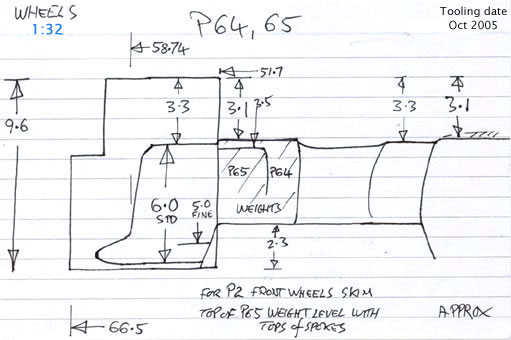 WHEELS
1:32
P64, 65
Tooling date
Oct 2005
58.74
51.7
9.6
3.3
3.1
3.5
3.3
3.1
P65
P64
6.0
STD
5.0
FINE
WEIGHTS
2.3
FOR P2 FRONT WHEELS SKIM
TOP OF P65 WEIGHT LEVEL WITH
TOPS of SPOKES
APPROX
66.5